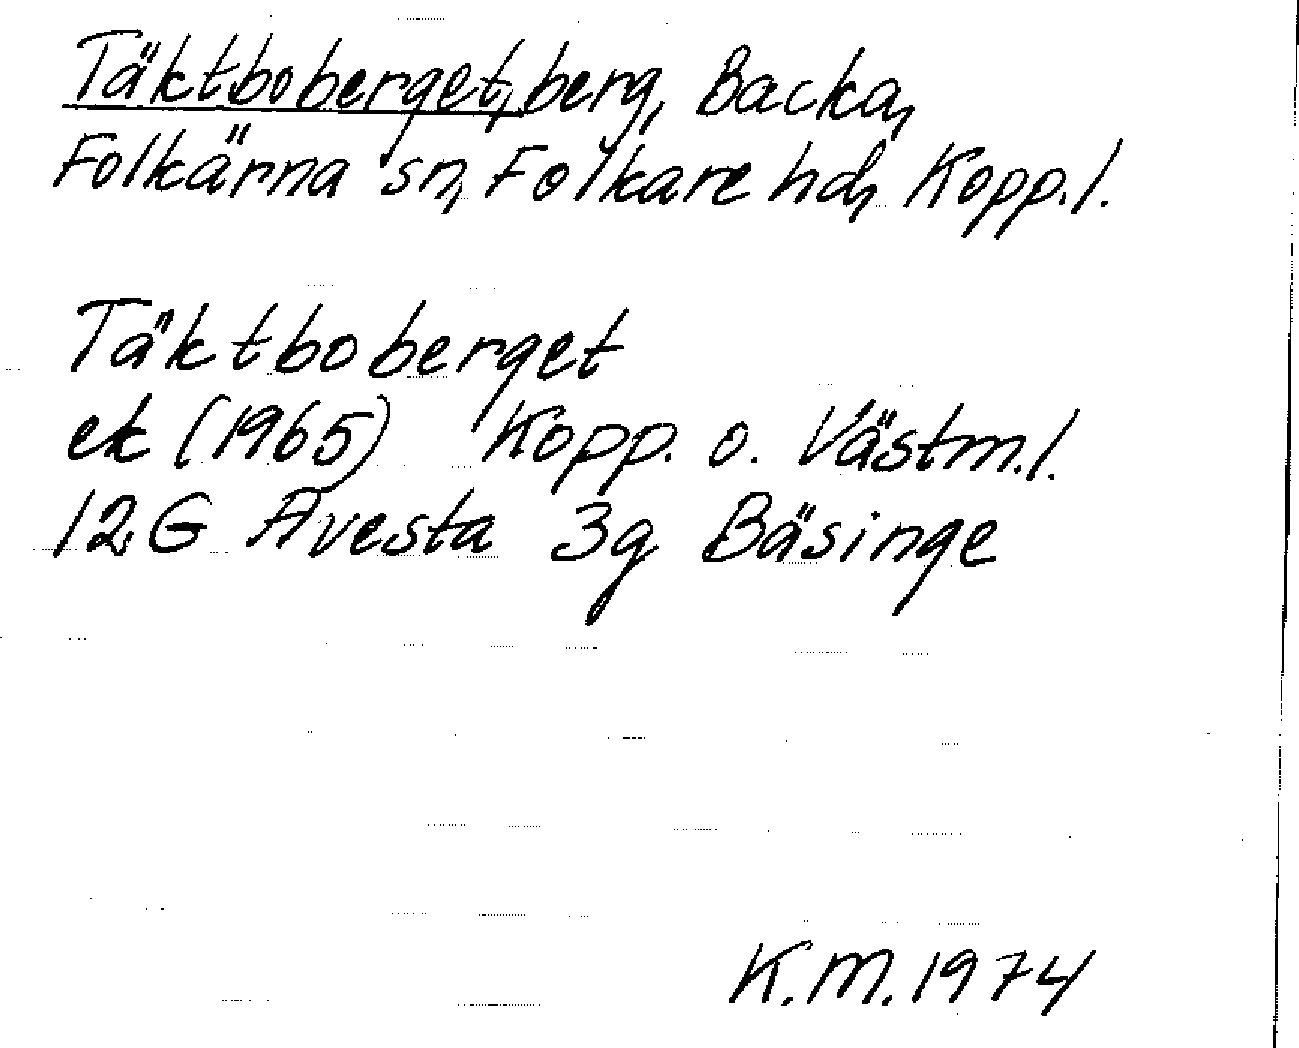 Täktboberget, berg, Backa,
Folkärna sn, Folkare hd, Kopp.l.
Täktboberget
ek (1965) Kopp. o. Västm.l.
12 G Avesta 3g Bäsinge
K.M. 1974